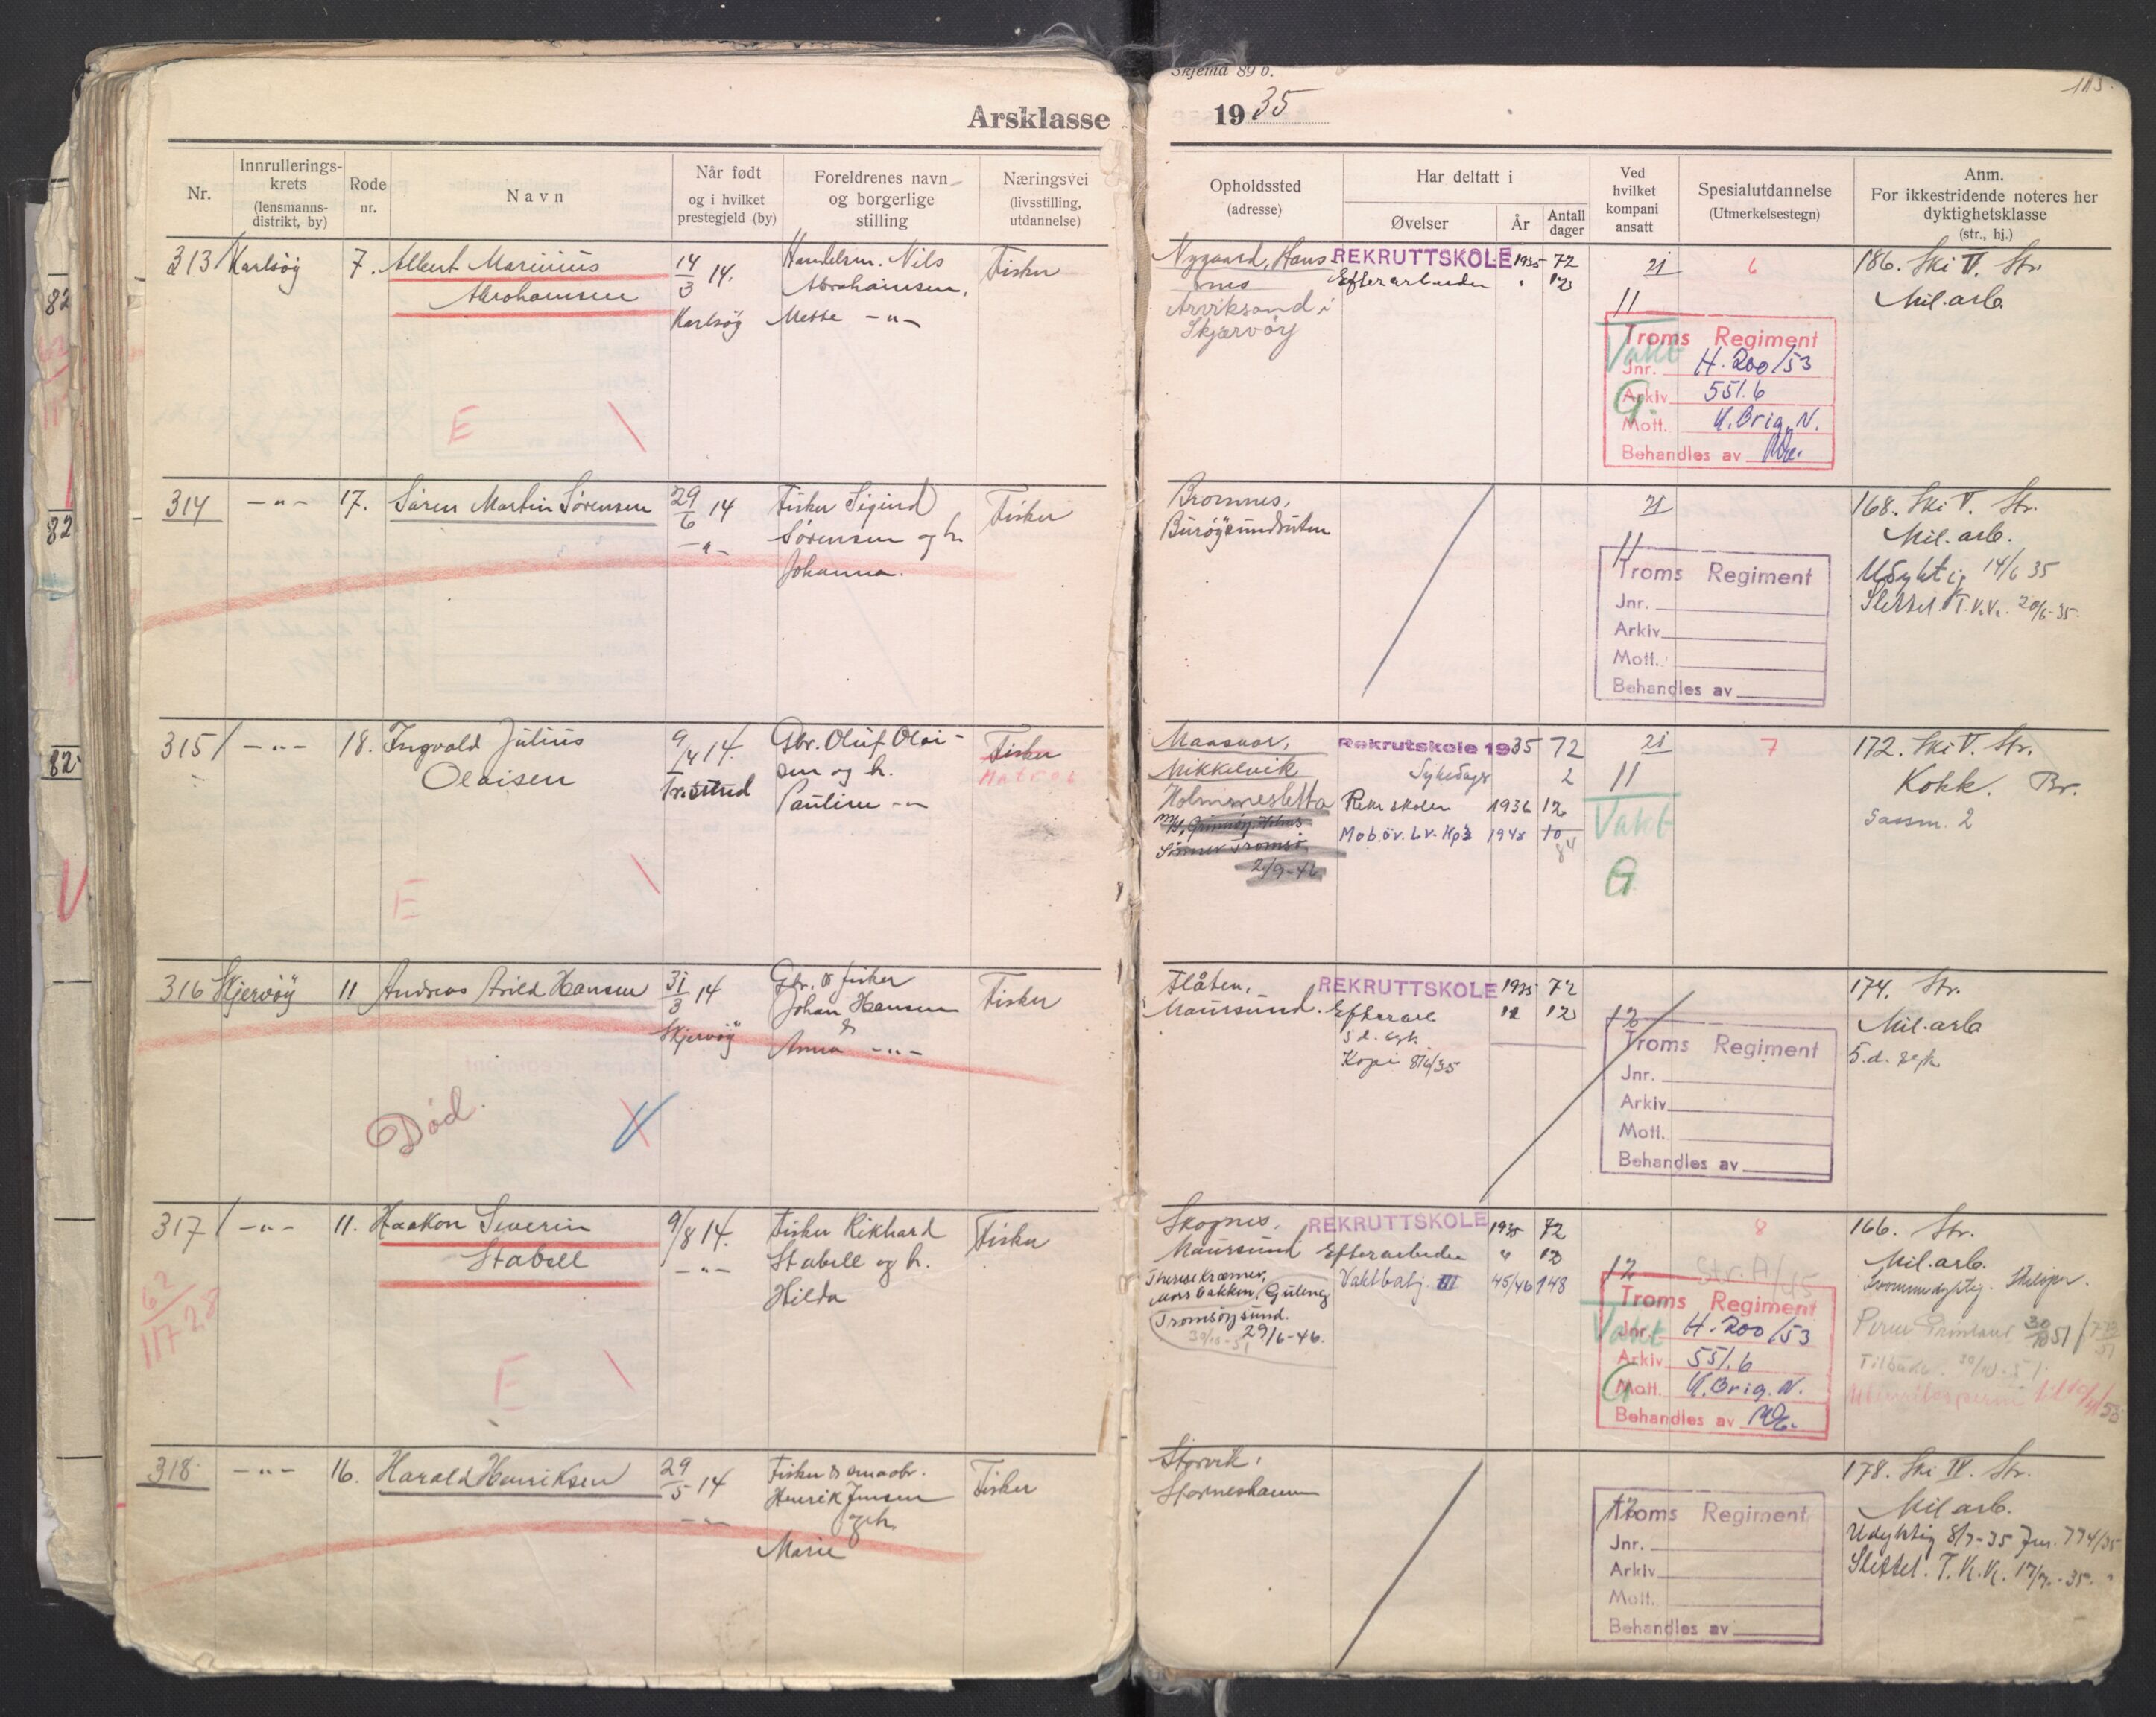 Skjema 89 b.
Årsklasse 1935
Nr.
Innrullerings-
krets
(lensmanns-
distrikt, by)
Rode
nr.
Navn
Når født
og i hvilket
prestegjeld (by)
Foreldrenes navn
og borgerlige
stilling
Næringsvei
(livsstilling,
utdannelse)
Opholdssted
(adresse)
Har deltatt i
Øvelser
År
Antall
dager
Ved
hvilket
kompani
ansatt
Spesialutdannelse
(Utmerkelsestegn)
Anm.
For ikkestridende noteres her
dyktighetsklasse
(str., hj.)
313 Karlsöy 7. Albert Marinius
Abrahamsen
14/3 14.
Karlsöy
Handelsm. Nils
Abrahamsen,
Mette -"-
Fisker
E
Nygaard, Hans-
nes
Arviksand i
Skjærvöy
REKRUTTSKOLE 1935 72
Efterarbeider " 12
21
11
Vakt
G.
Troms Regiment
Jnr. H. 200/53
Arkiv 551.6
Mott. K. Brig. N.
Behandles av
6
186. Ski V. Str.
Mil. arb.
314 -"- 17. Sören Martin Sørensen
29/6 14
-"-
Fisker Sigurd
Sørensen og h.
Johanna.
Fisker
Bromnes,
21
11
Troms Regiment
Jnr.
Arkiv
Mott.
Behandles av
168. Ski V. Str.
Mil. arb.
Udyktig 14/6 35
Slettet. T.V.V. 20/6-35.
315 / -"- 18. Ingvald Julius
Olaisen
9/4 14.
Gbr. Oluf Olai-
sen og h.
Pauline -"-
Fisker
Matros
E
Maasvær,
Mikkelvik
Holmesletta
2/9-42
Rekrutskole 1935 72
Sykedager 2
Rekr skolen 1936 12
Mob. öv. Lv. Kp 2 1948 10
84
21
11
Vakt
G
7
172. Ski V. Str.
Kokk. Br.
Sassm. 2
316 Skjervöy 11 Andreas Arild Hansen
31/3 14
Skjervöy
Gbr. & fisker
Johan Hansen
&
Anna -"-
Fisker
Død.
Flåten,
Maursund.
REKRUTTSKOLE 1935 72
Efterarb " 12
5 d. syk
Kopi 8/6/35
12
Troms Regiment
Jnr.
Arkiv
Mott.
Behandles av
174. Str.
Mil. arb
5. d. syk
317 / -"- 11. Haakon Severin
Stabell
9/8 14.
-"-
Fisker Rikhard
Stabell og h.
Hilda
Fisker
62
11728
E
Skognes,
Maursund
Therese Kræmer,
Mors bakken, Guleng
Tromsöysund.
29/6-46.
30/10-51
REKRUTTSKOLE 1935 72
Efterarbeider " 12
Vaktbatj. III 45/46 148
12
Vakt
G
8
Str. A/45
Troms Regiment
Jnr. H. 200/53
Arkiv 551.6
Mott. K. Brig. N.
Behandles av
166. Str.
Mil. arb.
Svømmedyktig.
Tilbake. 30/10-51
318 -"- 16. Harald Henriksen
29/5 14
-"-
Fisker & smaabr.
Henrik Jensen
og h.
Marie
Fisker
Storvik,
12
Troms Regiment
Jnr.
Arkiv
Mott.
Behandles av
178. Ski IV. Str.
Mil arb.
Udyktig 8/7-35 Jnr. 774/35
Slettet. T.K.K. 17/7.-35.